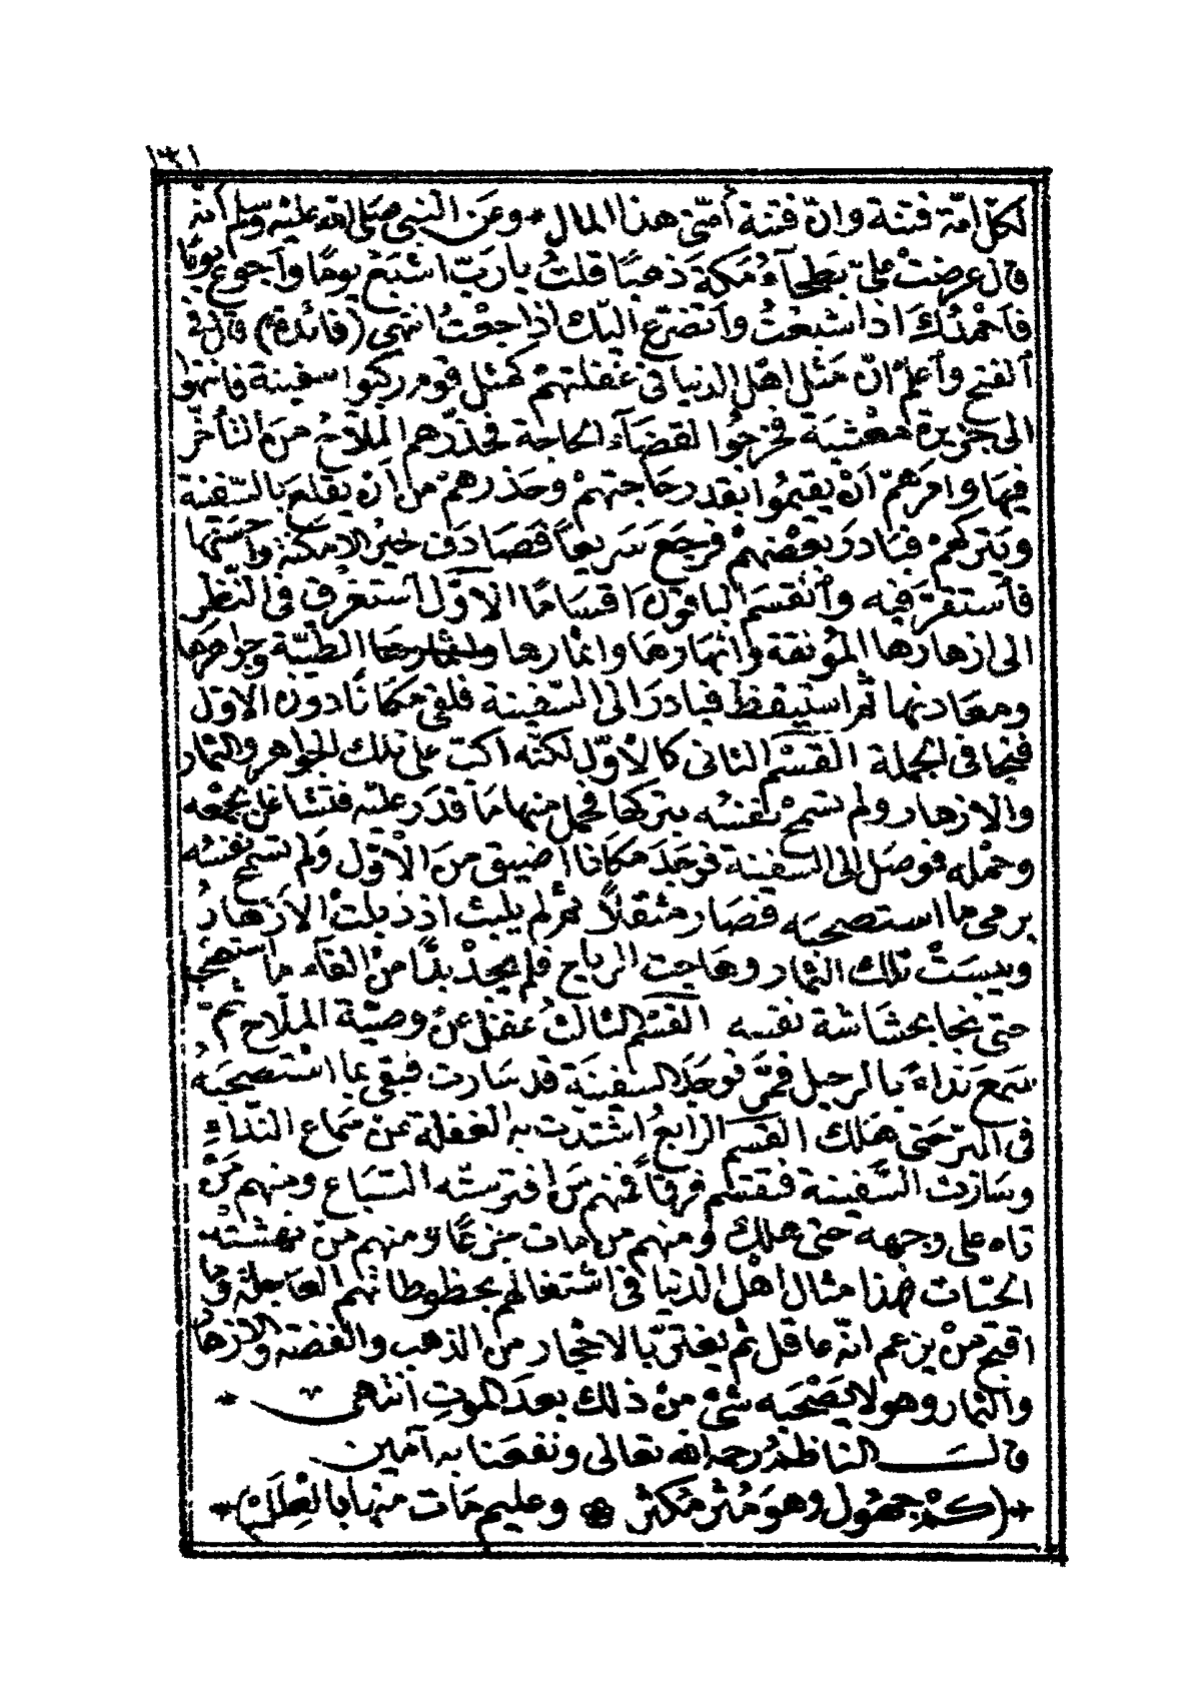 ١٣١
لكلّ امّة فتنة وانّ فتنة أمّتى هذا المال * وعن النبى صلى الله عليه وسلم أنه
قال عرضت علىّ بطحآءُ مكة ذهبًا قلتُ يارب اشبَعُ يومًا وأجوع يومًا
فأحمدُكَ اذا شبعْتُ وأتضرّع اليك اذا جعْتُ انتهى (فائدة) قال فى
ألفتح وأعلم انّ مَثل اهل الدنيا فى غفلتهم كمثل قوم ركبوا سفينة فانتهوا
الى جزيرة معْشبَة فخرجُوا لقضَآء الحاجة فحذّرهم الملّاحُ من التأخّر
فيهَا وامرَهمْ أنْ يقيمُوا بقدر حَاجتهمْ وحَذرهمْ من أنْ يقلعَ بالسّفينة
ويَتركهمْ فبَادرَ بعْضهمْ فرجَعَ سَريعاً فصَادفَ خيْر الامكنة وأحسَنها
فأستقرّ فيه وأنقسَمَ الباقونَ اقسَامًا الاوّل استغرق فى النّظر
الى ازهارها المُونقة وانهَارهَا واثمارها واثمارهَا الطيّبَة وجواهرهَا
ومعَادنها ثم استيقظ فبادرَ الى السّفينة فلقى مكانًا دون الاوّل
فنجا فى الجملة القسْم الثانى كالأوّل لكنّه اكبّ على تلك الجواهر والثمار
والازهار ولم تسْمحْ نفسُه بتركها فحمل منها مَا قدَر عليْه فتشاغل بجمْعه
وحمْله فوصَل الى السفينة فوجَدَ مكانا اضيق منَ الأوّل ولم تسْمح نفسُه
برمى ما استصحبَه فصَار مثقلاً ثم لم يلبث اذ ذبلتْ الأزهار
ويبسَتْ تلك الثمار وهَاجت الرياح فلم يجدْ بدًّا منْ القآء ما استصْحبَه
حتى نجا بحشَاشة نفسه القسْم الثالثُ غفل عنْ وصيّة الملّاح ثمّ
سَمعَ ندَاءَه بالرحيل فمرّ فوجَدَ السفينَة قد سَارت فبقى بما اسْتصحبَه
فى البرّ حَتى هَلك القسم الرابعُ اشتدّت به الغفلة عن سَماع الندَاءِ
وسَارت السّفينة فتقسّم فرقاً فمنهم مَن افترسَتْه السّبَاع ومنهم مَنْ
تاه على وجهه حَتى هلك ومنهم مَن مات جُوعًا ومنهم من نهشتْه
الحيّات هٰذا مثال اهْل الدنيا فى اشتغالهم بحظوظاتهم العَاجلة وما
اقبح منْ يزعم انّه عاقل ثم يغترّ بالاحْجار من الذهب والفضة والازهار
والثمار وهو لا يَصْحبَه شىْ منْ ذلك بعدَ الموت أنتهى *
قال الناظمُ رحمه الله تعالى ونفعَنا به آمين
* (كمْ جهُول وهوَ مُثرٍ مُكثرٌ ۞ وعليم مَات منها بالعِللْ) *